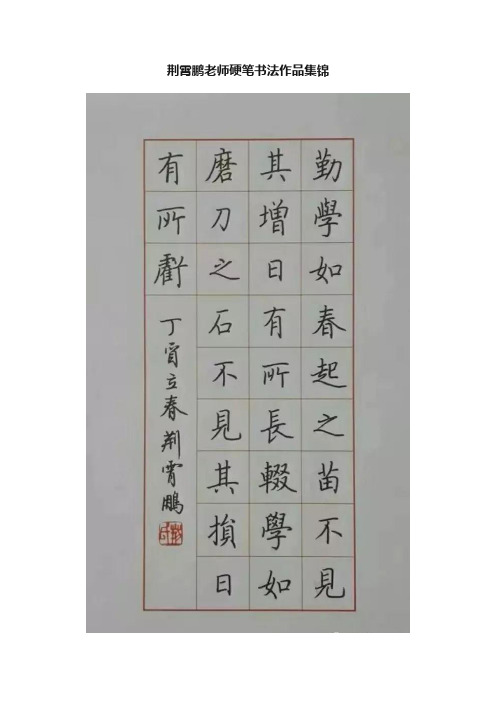 荆霄鹏老师硬笔书法作品集锦
勤學如春起之苗不見
其增日有所長輟學如
磨刀之石不見其損日
有所虧
丁酉立春荆霄鵬